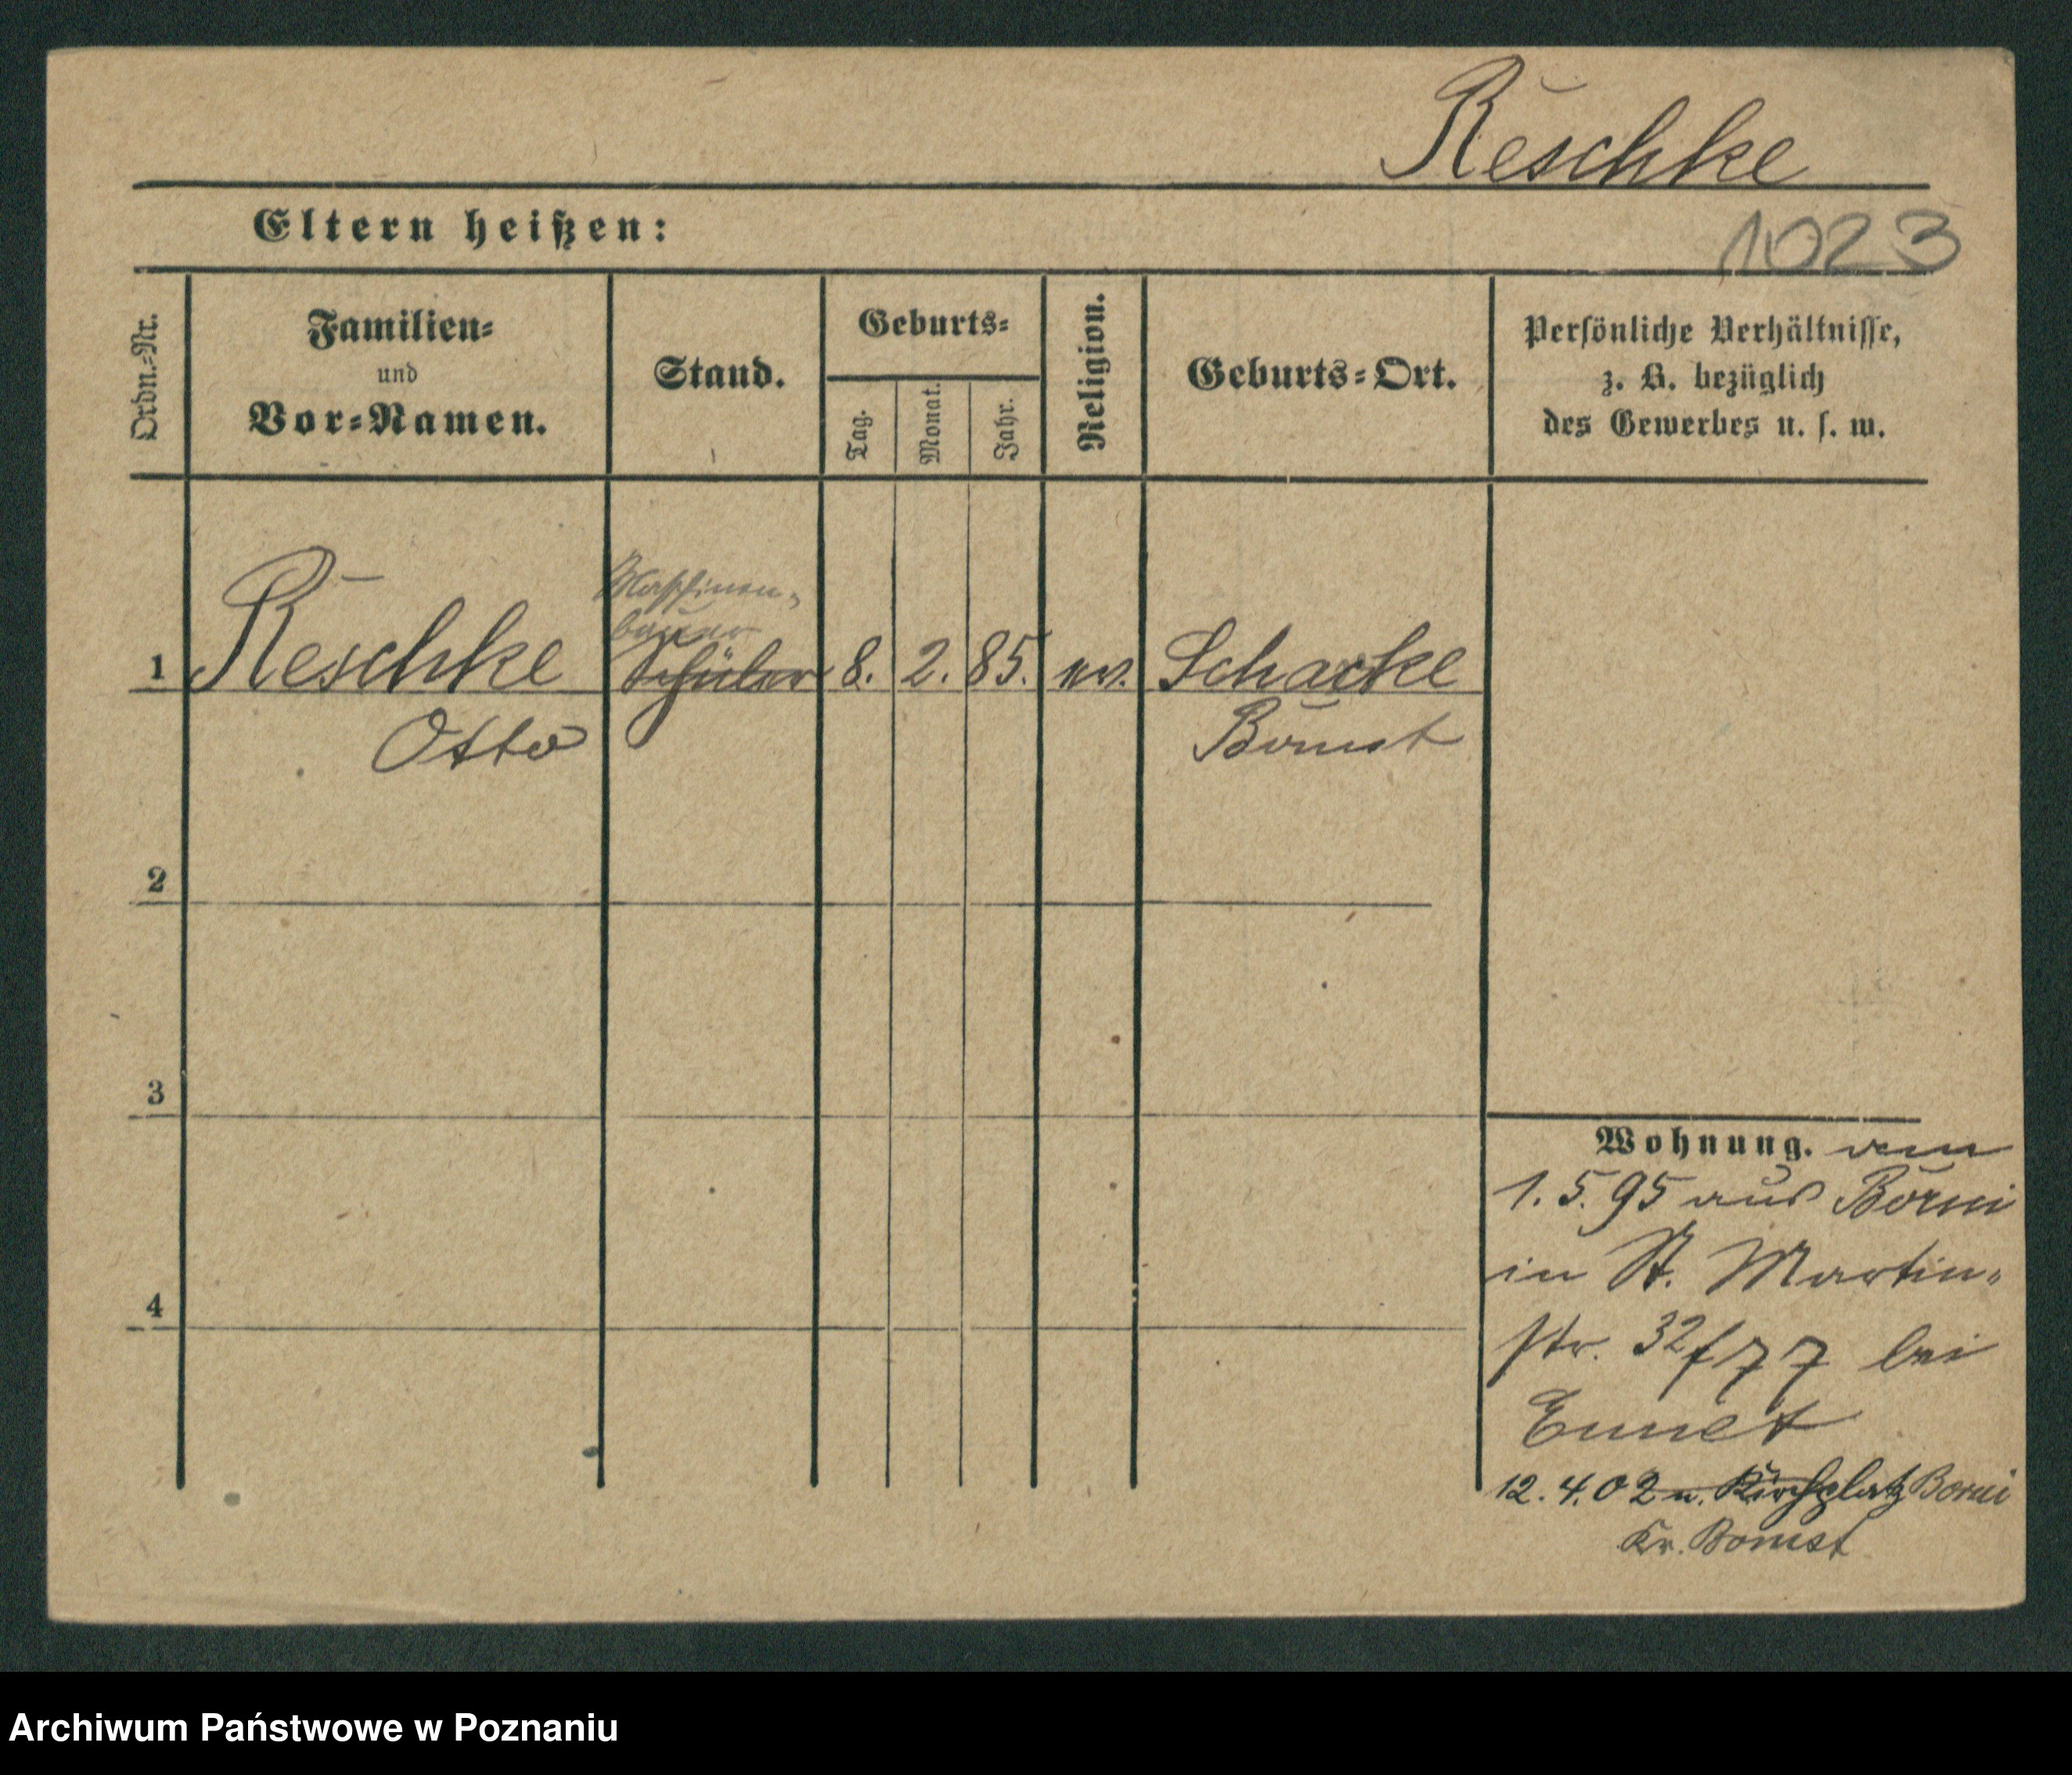 Reschke
Eltern heißen:
1023
Ordn.=Nr.
Familien=
und
Vor=Namen.
Stand.
Geburts=
Tag.
Monat.
Jahr.
Religion.
Geburts=Ort.
Persönliche Verhältnisse,
z. B. bezüglich
des Gewerbes u. s. w.
Maschinen-
bauer
1 Reschke Schüler 8. 2. 85. ev. Scharke
Otto Bomst
2
3
4
Wohnung. am
1.5.95 aus Borui
in St. Martin-
str. 32/77 bei
12.4.02 n. Kirchplatz Borui
Kr. Bomst
Archiwum Państwowe w Poznaniu